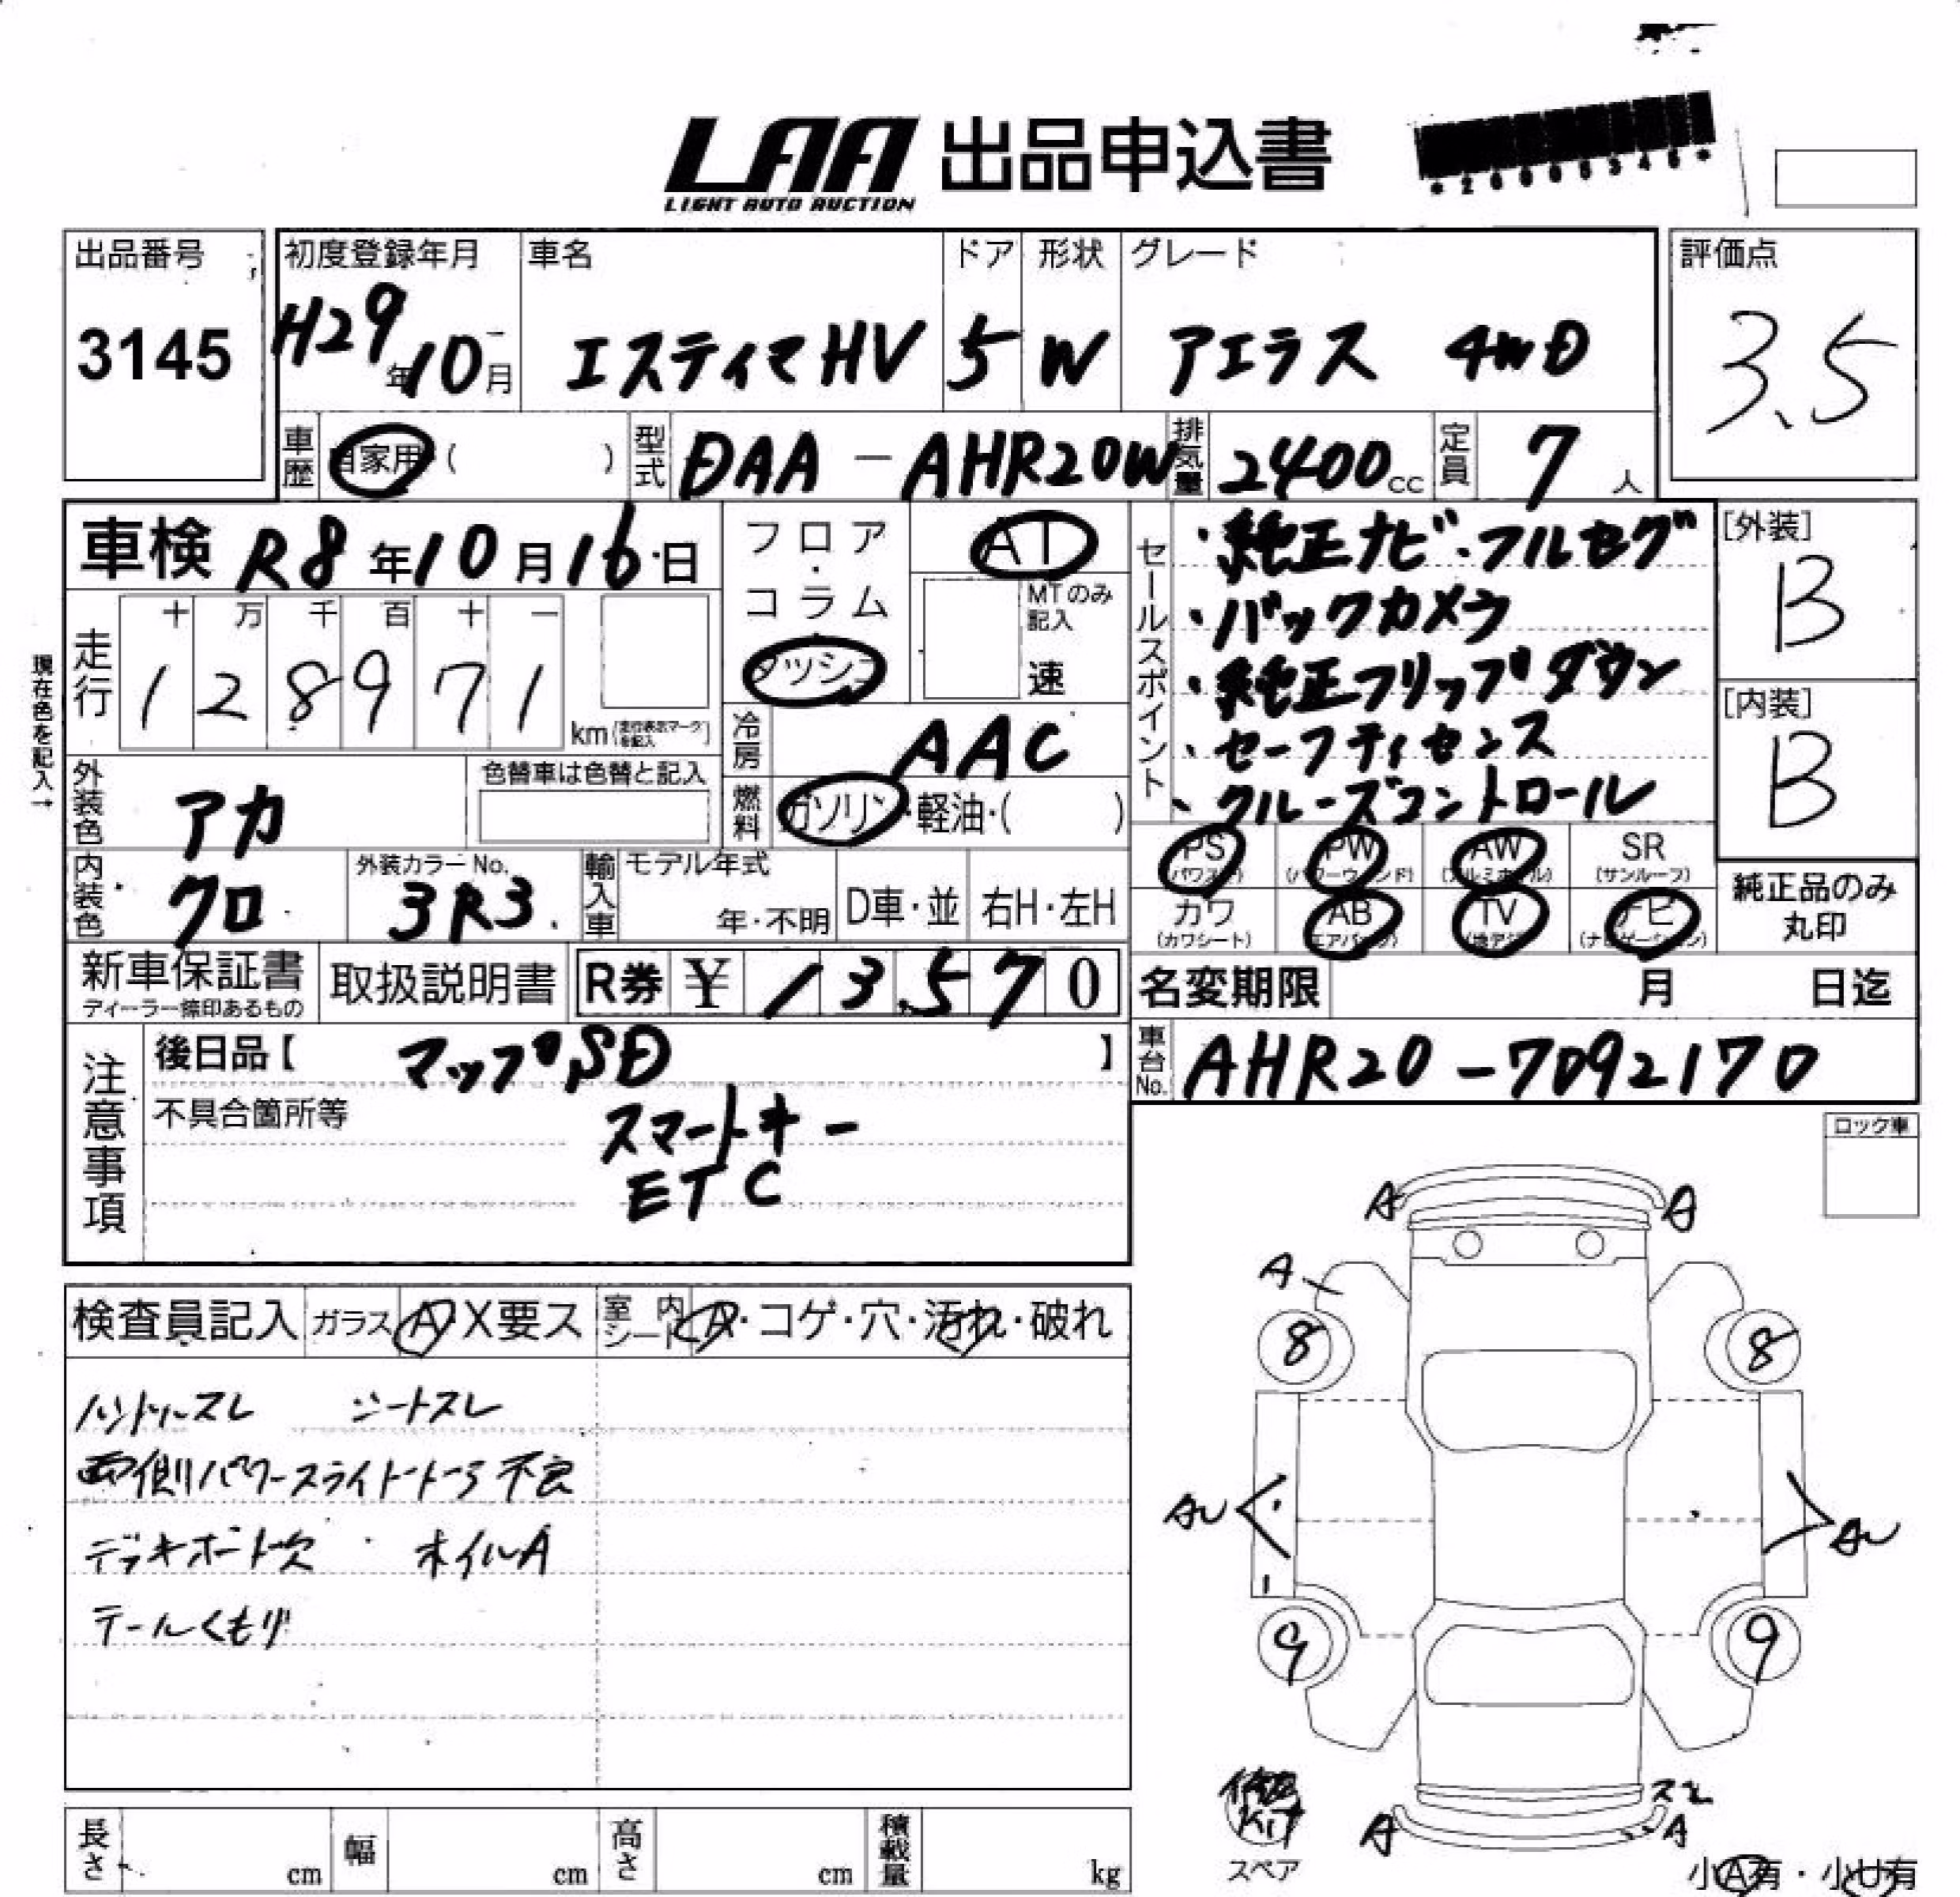 LAA 出品申込書
LIGHT AUTO AUCTION
出品番号
3145
初度登録年月
H29年10月
車名
エスティマHV
ドア
5
形状
W
グレード
アエラス 4WD
評価点
3.5
車歴
自家用・( )
型式
DAA-AHR20W
排気量
2400cc
定員
7人
車検 R8年10月16日
フロア・コラム
ダッシュ
AT
MTのみ記入
速
セールスポイント
・純正ナビ・フルセグ
・バックカメラ
・純正フリップダウン
・セーフティセンス
・クルーズコントロール
[外装]
B
[内装]
B
走行
十 万 千 百 十 一
1 2 8 9 7 1
km(走行表示マークを記入)
現在色を記入→
冷房
AAC
燃料
ガソリン・軽油・( )
外装色
アカ
色替車は色替と記入
内装色
クロ
外装カラーNo.
3R3
輸入車
モデル年式
年・不明
D車・並
右H・左H
PS
(パワステ)
PW
(パワーウィンド)
AW
(アルミホイル)
SR
(サンルーフ)
カワ
(カワシート)
AB
(エアバッグ)
TV
(地デジ)
ナビ
(ナビゲーション)
純正品のみ
丸印
新車保証書
ディーラー捺印あるもの
取扱説明書
R券 ¥ 13,570
名変期限 月 日迄
車台No.
AHR20-7092170
注意事項
後日品【 マップSD 】
不具合箇所等
スマートキー
ETC
ロック車
検査員記入
ガラス
A X要ス
室内シート
A・コゲ・穴・汚れ・破れ
ハンドルスレ シートスレ
両側パワースライドドア不良
デッキボード欠 ホイルA
テールくもり
A A
A
8 8
AU AU
9 9
スレ
A A
修理KIT
スペア
小A有・小U有
長さ cm
幅 cm
高さ cm
積載量 kg